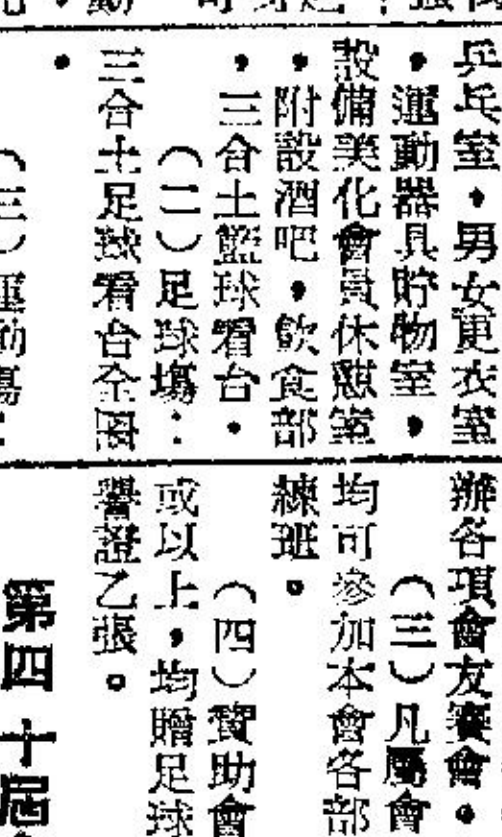 乒乓室，男女更衣室
，運動器具貯物室，
設備美化會員休憩室
，附設酒吧，飲食部
，三合土籃球看台。
（二）足球塲：
三合土足球看台全圈
。
（三）運動塲：
辦各項會友賽會。
（三）凡屬會
均可參加本會各部
練班。
（四）贊助會
或以上，均贈足球
譽證乙張。
第四十屆